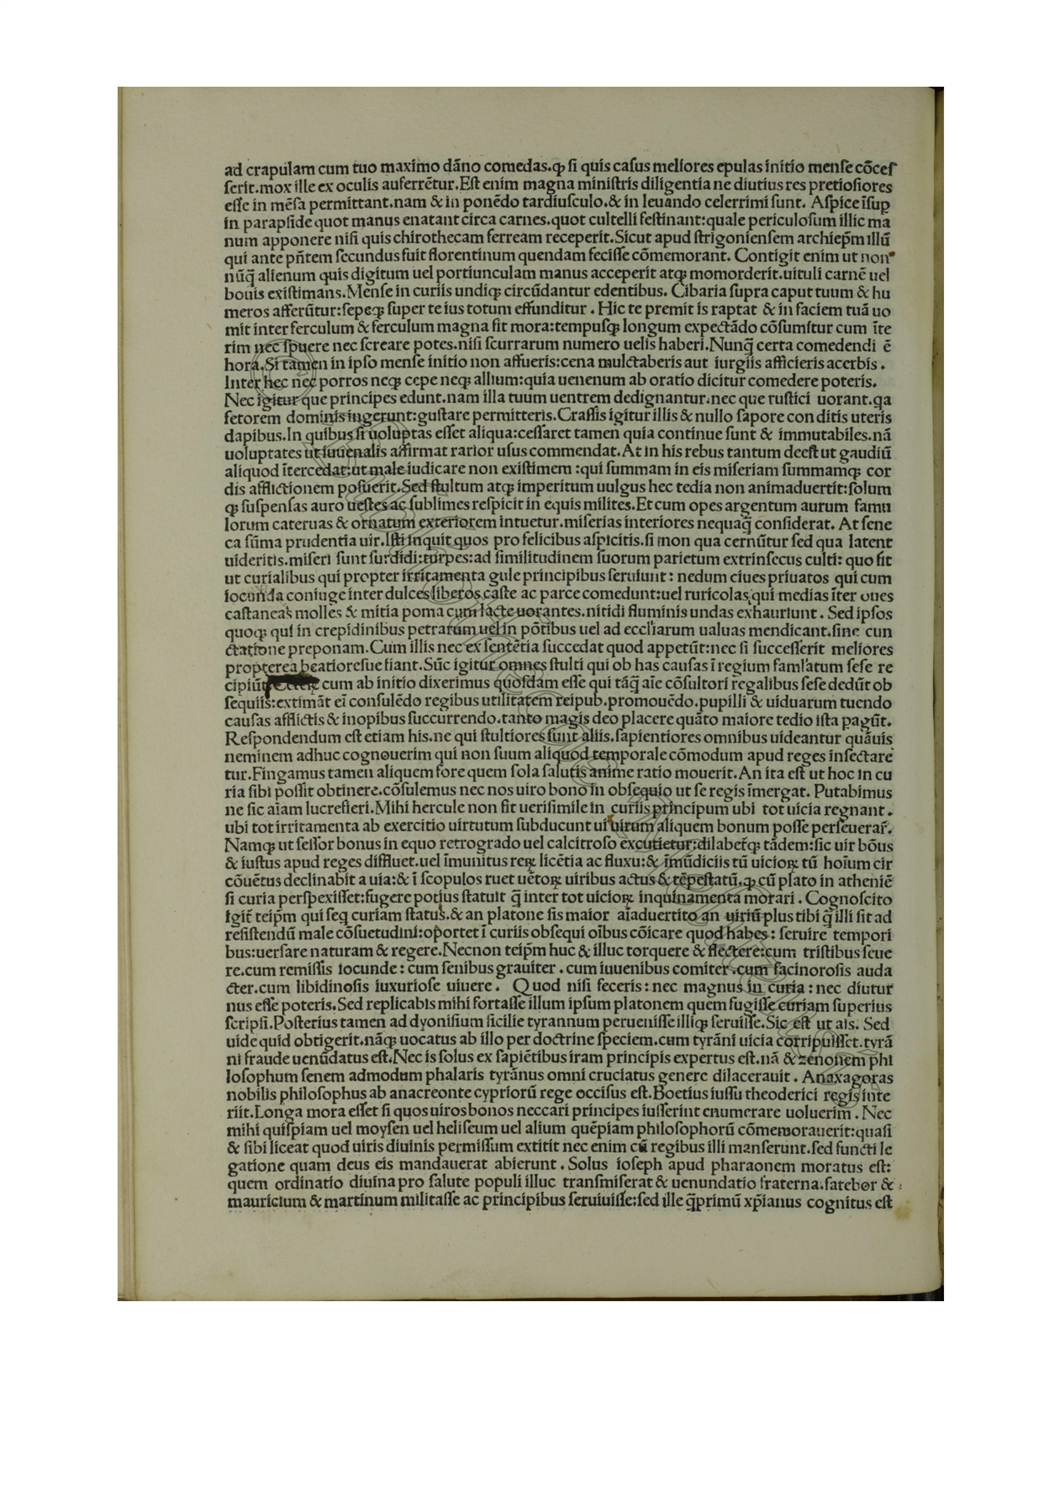 ad crapulam cum tuo maximo dãno comedas.ꝙ si quis casus meliores epulas initio mense cõces
serit.mox ille ex oculis auferrẽtur.Est enim magna ministris diligentia ne diutius res pretiosiores
esse in mẽsa permittant.nam & in ponẽdo tardiusculo.& in leuando celerrimi sunt. Aspice ĩsup
in parapside quot manus enatant circa carnes.quot cultelli festinant:quale periculosum illic ma
num apponere nisi quis chirothecam ferream receperit.Sicut apud strigoniensem archiep̃m illũ
qui ante pñtem secundus fuit florentinum quendam fecisse cõmemorant. Contigit enim ut non
nũq̃ alienum quis digitum uel portiunculam manus acceperit atqꝫ momorderit.uituli carnẽ uel
bouis existimans.Mense in curiis undiqꝫ circũdantur edentibus. Cibaria supra caput tuum & hu
meros afferũtur:sepeqꝫ super te ius totum effunditur . Hic te premit is raptat & in faciem tuã uo
mit inter ferculum & ferculum magna fit mora:tempusqꝫ longum expectãdo cõsumitur cum ĩte
rim nec spuere nec screare potes.nisi scurrarum numero uelis haberi.Nunq̃ certa comedendi ẽ
hora.Si tamen in ipso mense initio non affueris:cena mulctaberis aut iurgiis afficieris acerbis .
Inter hec nec porros neqꝫ cepe neqꝫ allium:quia uenenum ab oratio dicitur comedere poteris.
Nec igitur que principes edunt.nam illa tuum uentrem dedignantur.nec que rustici uorant.qa
fetorem dominis ingerunt:gustare permitteris. Crassis igitur illis & nullo sapore con ditis uteris
dapibus.In quibus si uoluptas esset aliqua:cessaret tamen quia continue sunt & immutabiles.nã
uoluptates ut iuuenalis affirmat rarior usus commendat. At in his rebus tantum deest ut gaudiũ
aliquod ĩtercedat:ut male iudicare non existimem :qui summam in eis miseriam summamqꝫ cor
dis afflictionem posuerit.Sed stultum atqꝫ imperitum uulgus hec tedia non animaduertit:solum
qꝫ suspensas auro uestes ac sublimes respicit in equis milites.Et cum opes argentum aurum famu
lorum cateruas & ornatum exteriorem intuetur.miserias interiores nequaq̃ considerat. At sene
ca sũma prudentia uir.Isti inquit quos pro felicibus aspicitis.si mon qua cernũtur sed qua latent
uideritis.miseri sunt sordidi:turpes:ad similitudinem suorum parietum extrinsecus culti: quo fit
ut curialibus qui propter irritamenta gule principibus seruiunt : nedum ciues priuatos qui cum
iocunda coniuge inter dulces liberos caste ac parce comedunt:uel ruricolas qui medias ĩter oues
castaneas molles & mitia poma cum lacte uorantes.nitidi fluminis undas exhauriunt . Sed ipsos
quoqꝫ qui in crepidinibus petrarum uel in põtibus uel ad eccl'iarum ualuas mendicant.sine cun
ctatione preponam.Cum illis nec ex sentẽtia succedat quod appetũt:nec si successerit meliores
propterea beatioresue fiant.Sũc igitur omnes stulti qui ob has causas ĩ regium famlatum sese re
cipiũt cum ab initio dixerimus quosdam esse qui tãq̃ aĩe cõsultori regalibus sese dedũt ob
sequiis:extimãt eĩ consulẽdo regibus utilitatem reipub.promouẽdo.pupilli & uiduarum tuendo
causas afflictis & inopibus succurrendo.tanto magis deo placere quãto maiore tedio ista pagũt.
Respondendum est etiam his.ne qui stultiores sunt aliis.sapientiores omnibus uideantur quãuis
neminem adhuc cognouerim qui non suum aliquod temporale cõmodum apud reges insectare
tur.Fingamus tamen aliquem fore quem sola salutis anime ratio mouerit.An ita est ut hoc in cu
ria sibi possit obtinere.cõsulemus nec nos uiro bono in obsequio ut se regis ĩmergat. Putabimus
ne sic aĩam lucrefieri.Mihi hercule non fit uerisimile in curiis principum ubi tot uicia regnant .
ubi tot irritamenta ab exercitio uirtutum subducunt ui uirum aliquem bonum posse perseuerar̃.
Namqꝫ ut sessor bonus in equo retrogrado uel calcitroso excutietur:dilabet̃qꝫ tãdem:sic uir bõus
& iustus apud reges diffluet.uel ĩmunitus reꝝ licẽtia ac fluxu:& ĩmũdiciis tũ uicioꝝ tũ hoĩum cir
cõuẽtus declinabit a uia:& ĩ scopulos ruet uẽtoꝝ uiribus actus & tẽpestatũ.ꝙ cũ plato in atheniẽ
si curia perspexisset:fugere potius statuit q̃ inter tot uicioꝝ inquinamenta morari . Cognoscito
igit̃ teip̃m qui seq̃ curiam status.& an platone sis maior aĩaduertito an uiriũ plus tibi q̃ illi sit ad
resistendũ male cõsuetudini:oportet ĩ curiis obsequi oĩbus cõicare quod habes : seruire tempori
bus:uersare naturam & regere.Necnon teip̃m huc & illuc torquere & flectere:cum tristibus seue
re.cum remissis iocunde : cum senibus grauiter . cum iuuenibus comiter .cum facinorosis auda
cter.cum libidinosis luxuriose uiuere . Quod nisi feceris : nec magnus in curia : nec diutur
nus esse poteris.Sed replicabis mihi fortasse illum ipsum platonem quem fugisse curiam superius
scripsi.Posterius tamen ad dyonisium sicilie tyrannum peruenisse illiqꝫ seruisse.Sic est ut ais. Sed
uide quid obtigerit.nãqꝫ uocatus ab illo per doctrine speciem.cum tyrãni uicia corripuisset.tyrã
ni fraude uenũdatus est.Nec is solus ex sapiẽtibus iram principis expertus est.nã & zenonem phi
losophum senem admodum phalaris tyrãnus omni cruciatus genere dilacerauit . Anaxagoras
nobilis philosophus ab anacreonte cypriorũ rege occisus est.Boetius iussu theoderici regis inte
riit.Longa mora esset si quos uiros bonos neccari principes iusserint enumerare uoluerim . Nec
mihi quispiam uel moysen uel heliseum uel alium quẽpiam philosophorũ cõmemorauerit:quasi
& sibi liceat quod uiris diuinis permissum extitit nec enim cũ regibus illi manserunt.sed functi le
gatione quam deus eis mandauerat abierunt . Solus ioseph apud pharaonem moratus est:
quem ordinatio diuina pro salute populi illuc transmiserat & uenundatio fraterna.fatebor &
mauricium & martinum militasse ac principibus seruiuisse:sed ille q̃primũ xp̃ianus cognitus est